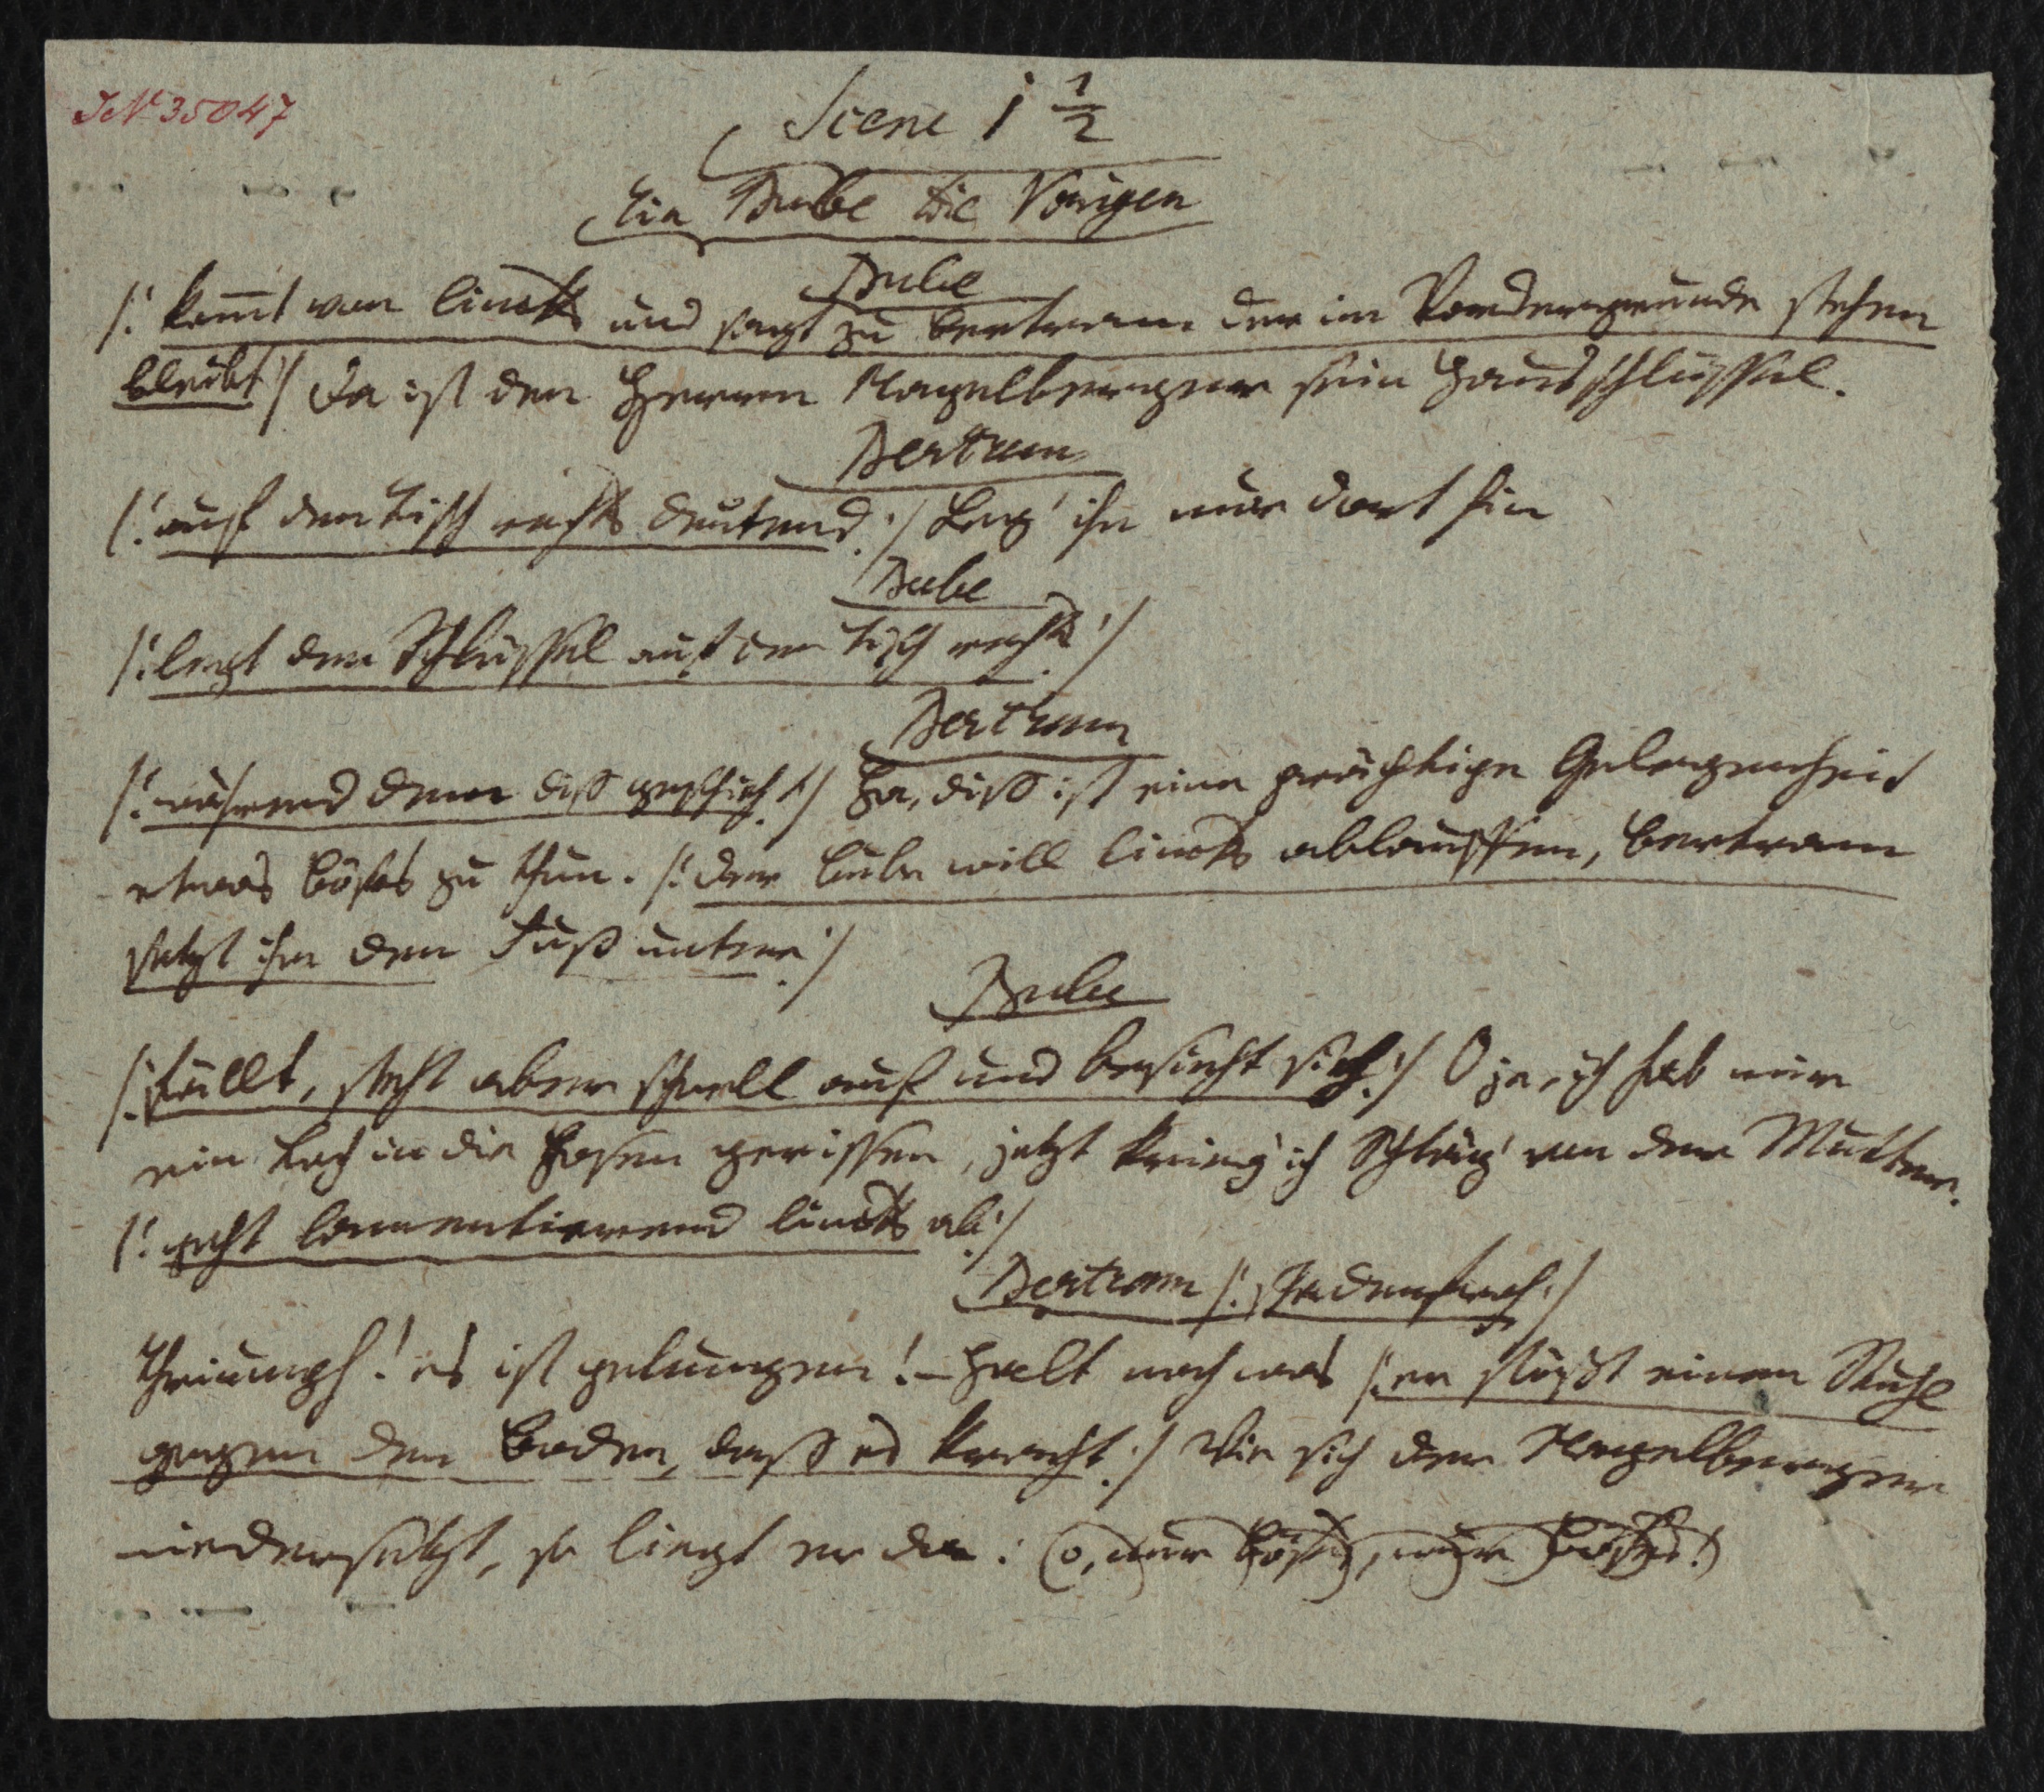 JN 35047
Scene 1 1/2
Ein Bube die Vorigen
Bube
/: kommt von lincks und sagt zu Bertram der im Vordergrunde stehen
bleibt :/ Da ist den Herrn Nagelberger sein Hausschlüssel.
Bertram
/: auf den Tisch rechts deutend :/ Leg' ihn nur dort hin
Bube
/: legt den Schlüssel auf den Tisch rechts :/
Bertram
/: während dem diß geschieht :/ Ha, diß ist eine prächtige Gelegenheit
etwas böses zu thun. /: der Bube will lincks ablauffen, Bertram
setzt ihm den Fuß unter :/
Bube
/: fällt, steht aber schnell auf und besieht sich :/ O je, ich hab mir
ein Loch in die Hosen gerissen, jetzt krieg' ich Schläg' von der Mutter.
/: geht lamentierend lincks ab :/
Bertram /: schadenfroh :/
Thriumph! es ist gelungen! – Halt noch was /: er stößt einen Stuhl
gegen den Boden, daß es kracht :/ Wie sich der Nagelberger
niedersetzt, so liegt er da. (o, nur böses, nur böses!)